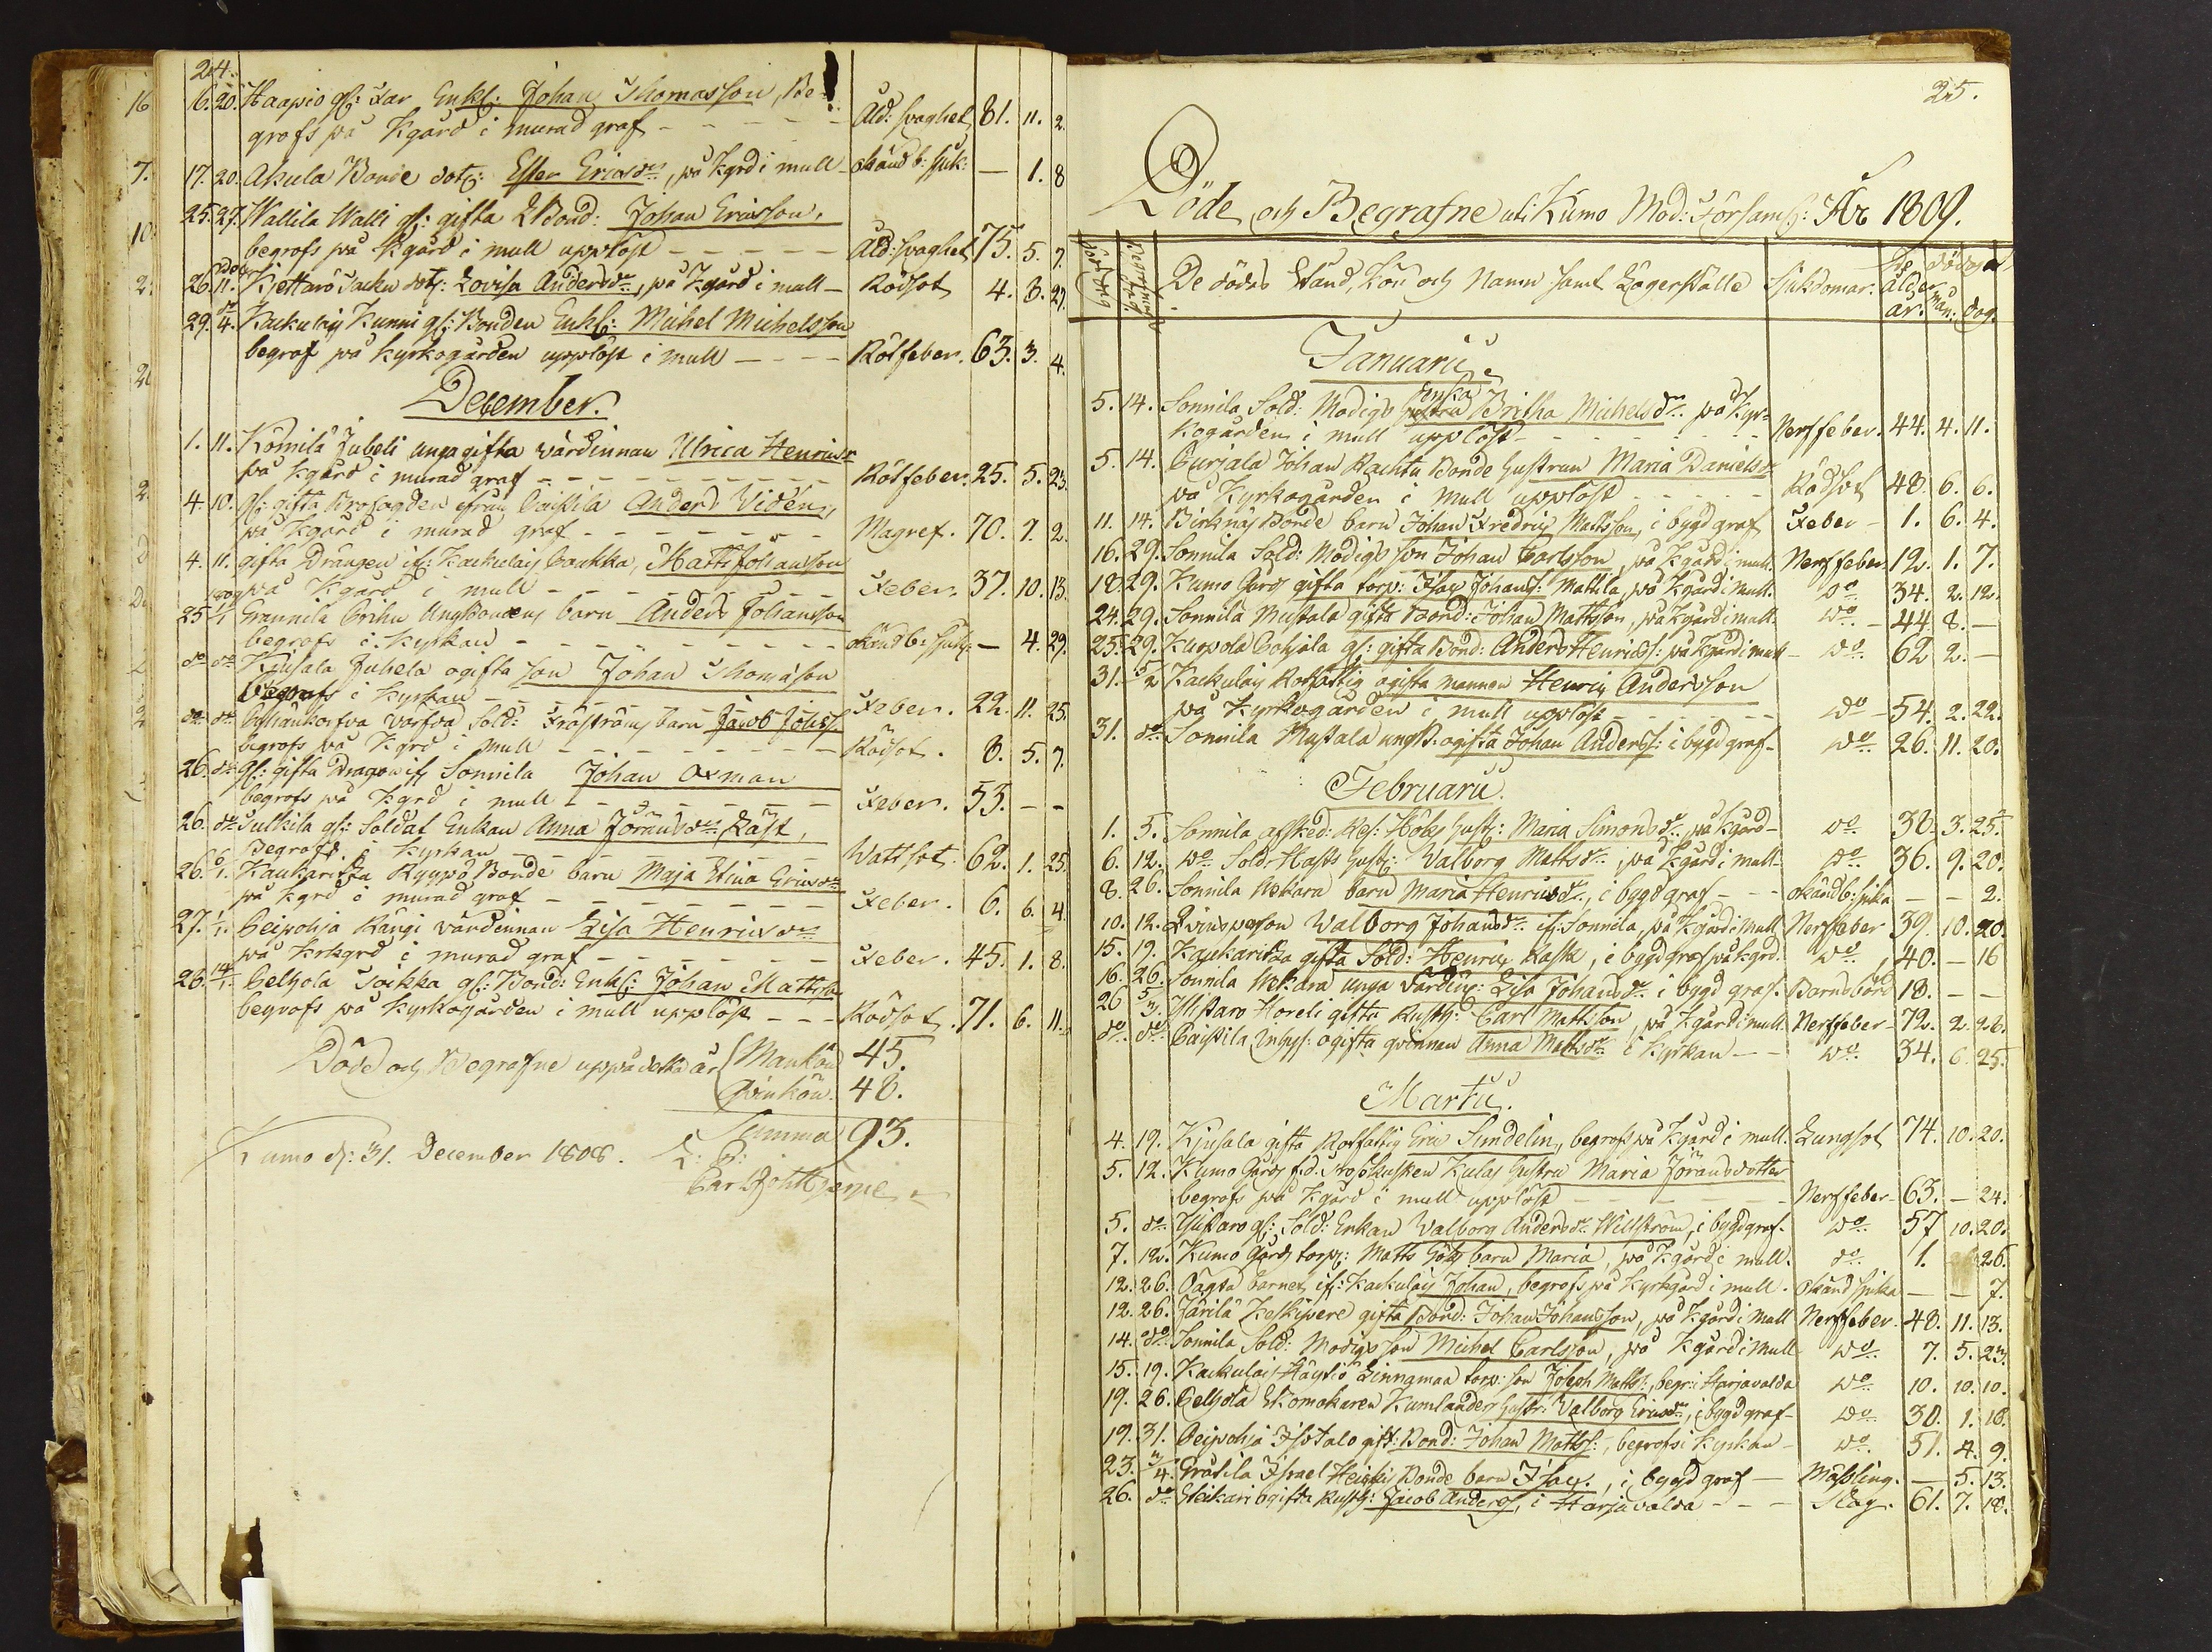 24.
16. 20. Haapio gl: Far Enkl: Johan Thomasson, Be-
grofs på Kgård i murad graf - - - - Åld: svaghet 81. 11. 2.
17. 20. Akula Bonde dotr: Ester Ericsdr, på Kgrd i mull - okänd b: sjuk: — 1. 8
25. 27. Wallila Walli gl: gifta Bond: Johan Ericsson,
begrofs på Kgård i mull upplöst - - - - Åld: svaghet 75. 5. 7.
26. 11. Kjettarö Jacku dotr: Lovisa Andersdr, på Kgård i mull - Rödsot 4. 8. 27.
29. 4. Kackulais Kunni gl: Bonden Enkl: Michel Michelsson
begrof på kyrkogården upplöst i mull - - - - Rötfeber. 63. 3. 4.
December.
1. 11. Kömilä Jubeli unga gifta värdinnan Ulrica Henricsdr
på Kgård i murad graf - - - - Rötfeber. 25. 5. 23.
4. 18. gl: gifta Anders Vidén,
på Kgård i murad graf - - - - Magref. 70. 7. 2.
4. 11. gifta Drängen ifr: Kackulais Caukka, Matts Johansson
på Kgård i mull - - - - Feber. 37. 10. 13.
1809
25 1/1 Grannila Prihu Ungbondens barn Anders Johansson
begrofs i Kyrkan - - - - okänd b: sjuk: — 4. 29.
do do Kiusala Juhela ogifta son Johan Thomasson
Begrofs i Kyrkan - - - - Feber. 22. 11. 25.
do do Sold: Froströms barn Jacob Johss:
begrofs på Kgrd i mull - - - - Rödsot. 8. 5. 7.
26. do gl: gifta Dragon ifr Sonnila Johan Oxman
begrofs på Kgrd i mull - - - - Feber. 53. - -
26. do Sulkila gl: Soldat Enkan Anna Jöransdr Lást,
Begrofs. i Kyrkan - - - - Wattsot. 62. 1. 25.
26. 6/1. Kaukaritza Ryypö Bonde barn Maja Stina Ericsdr
på Kgrd i murad graf - - - - Feber. 6. 6. 4.
27. 1/1. Peipohja Rängi värdinnan Lisa Henricsdr
på Krkgrd i murad graf - - - - Feber. 45. 1. 8.
26. 14/1. Pelhola Toikka gl: Bond: Enkl: Johan Mattss:
begrofs på Kyrkogården i mull upplöst - - - Rödsot. 71. 6. 11.
Döde och Begrafne uppå detta år Mankön 45.
Qvinkön. 48.
Summa 93.
Kumo d: 31. December 1808.
25.
Döde och Begrafne uti Kumo Mod: Församl: År 1809.
Död dag Begrafnings dag. De dödas Stånd, Kön och Namn samt Lägerställe Sjukdomar. De dödas ålder år. Mån: dag.
Januarii
5. 14. Sonnila Sold: Modigs Enka Britha Michelsdr på Kyr-
kogården i mull upplöst - - - - Nerffeber. 44. 4. 11.
5. 14. Curjala Johan Rachtu Bonde hustrun Maria Danielsdr
på Kyrkogården i mull upplöst - - - - Rödsot 48. 6. 6.
11. 14. Birknäs Bonde barn Johan Fredrix Mattsson, i bygd graf Feber - 1. 6. 4.
16. 29. Sonnila Sold: Modigs son Johan Carlsson, på Kgård i mull. Nerffeber 12. 1. 7.
18. 29. Kumo Gårds gifta torp: Isac Johans: Mattila, på Kgård i mull. Do 34. 2. 12.
24. 29. Sonnila Mustala gifta Bond: Johan Mattsson, på Kgård i mull. Do - 44 8. —
25. 29. Kuopola Cohjala gl: gifta Bond: Anders Henricss: på Kgård i mull - Do 62 2. —
31. 5/2 Kackulais Rotfattig ogifta mannen Henric Andersson
på Kyrkogården i mull upplöst - - - - Do - 54. 2. 22.
31. do Sonnila Mustala ungk. ogifta Johan Anderss: i bygd graf. Do 26. 11. 20.
Februarii.
1. 5. Sonnila afsked: Res: Höks hustr: Maria Simonsdr på Kgård - Do 38. 3. 25.
6. 12. Do Sold: Hasts hustr: Walborg Mattsdr, på Kgård i mull - Do 36. 9. 20.
8. 26. Sonnila Uckara barn Maria Henricsdr, i bygd graf - - - okänd b: sjuka — — 2.
10. 12. Qvinsperson Walborg Johansdr ifr: Sonnila, på Kgård i Mull Nerffeber 39. 10. 20.
15. 19. Kaukaritza gifta Sold: Henric Rask, i bygd graf på Kgrd. Do 40. — 16
16. 26. Sonnila Uckara unga värdin: Lisa Johansdr i bygd graf. Barnsbörd 18. — —
26 5/3. Ylistaro Horeli gifta Rusth: Carl Mattsson, på Kgård i mull. Nerffeber - 72. 2. 26.
do do Paistila Inhys: ogifta qvinnan Anna Mattsdr i Kyrkan - - Do 34. 6. 25.
Martii.
4. 19. Kjusala gifta Rotfattig Eric Sundelin, begrofs på Kgård i mull. Lungsot 74. 10. 20.
5. 12. Kumo Gårds f.d. Kulas hustru Maria Jöransdotter
begrofs på Kgård i mull upplöst - - - - Nerffeber - 63. — 24.
5. do Ylistaro gl: Sold: Enkan Valborg Andersdr Willström, i bygd graf - Do 57 10. 20.
7. 12. Kumo Gårds torp: Matts Göks barn Maria, på Kgård i mull. do 1. 26.
12. 26. Oägta barnet ifr: Kackulais Johan, begrofs på Kyrkgård i mull. Okänd sjuka — — 7.
12. 26. Järilä Keskivere gifta Bond: Johan Johansson, på Kgård i Mull Nerffeber. 48. 11. 13.
14. do Sonnila Sold: Modigs son Michel Carlsson, på Kgård i Mull Do 7. 5. 23.
15. 19. Kackulais Häytiö Linnamaa torp: son Joseph Mattss:, begr: i Harjavalda Do 10. 10. 10.
19. 26. Pelhola Skomakaren Kumlanders hustr: Valborg Ericsdr, i bygd graf - Do 30. 1. 18.
19. 31. Peipohja Isotalo gift: Bond: Johan Mattss:, begrofs i Kyrkan - Do 51. 4. 9.
23. 3/4. Grätila Israel Heickis Bonde barn Isac, i bygd graf - Mässling. — 5. 13.
26. do Steikari ogifta Rusth: Jacob Anderss, i Harjavalda - - - Slag. 61. 7. 18.